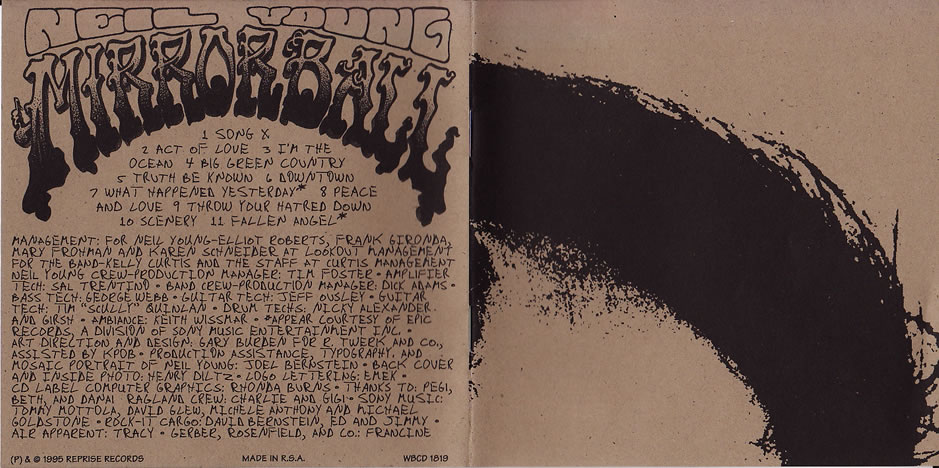 NEIL YOUNG
MIRROR BALL
1 SONG X
2 ACT OF LOVE 3 I'M THE
OCEAN 4 BIG GREEN COUNTRY
5 TRUTH BE KNOWN 6 DOWNTOWN
7 WHAT HAPPENED YESTERDAY* 8 PEACE
AND LOVE 9 THROW YOUR HATRED DOWN
10 SCENERY 11 FALLEN ANGEL*
MANAGEMENT: FOR NEIL YOUNG-ELLIOT ROBERTS, FRANK GIRONDA,
MARY FROHMAN AND KAREN SCHNEIDER AT LOOKOUT MANAGEMENT
FOR THE BAND-KELLY CURTIS AND THE STAFF AT CURTIS MANAGEMENT
NEIL YOUNG CREW-PRODUCTION MANAGER: TIM FOSTER • AMPLIFIER
TECH: SAL TRENTINO • BAND CREW-PRODUCTION MANAGER: DICK ADAMS •
BASS TECH: GEORGE WEBB • GUITAR TECH: JEFF OUSLEY • GUITAR
TECH: TIM "SCULLY" QUINLAN • DRUM TECHS: NICKY ALEXANDER
AND GIRSH • AMBIANCE: KEITH WISSMAR • *APPEAR COURTESY OF EPIC
RECORDS, A DIVISION OF SONY MUSIC ENTERTAINMENT INC. •
ART DIRECTION AND DESIGN: GARY BURDEN FOR R. TWERK AND CO.,
ASSISTED BY KPOB • PRODUCTION ASSISTANCE, TYPOGRAPHY, AND
MOSAIC PORTRAIT OF NEIL YOUNG: JOEL BERNSTEIN • BACK COVER
AND INSIDE PHOTO: HENRY DILTZ • LOGO LETTERING: EMEK •
CD LABEL COMPUTER GRAPHICS: RHONDA BURNS • THANKS TO: PEGI,
BETH, AND DANA RAGLAND CREW: CHARLIE AND GIGI • SONY MUSIC:
TOMMY MOTTOLA, DAVID GLEW, MICHELE ANTHONY AND MICHAEL
GOLDSTONE • ROCK-IT CARGO: DAVID BERNSTEIN, ED AND JIMMY •
AIR APPARENT: TRACY • GERBER, ROSENFIELD, AND CO.: FRANCINE
(P) & © 1995 REPRISE RECORDS MADE IN R.S.A. WBCD 1819